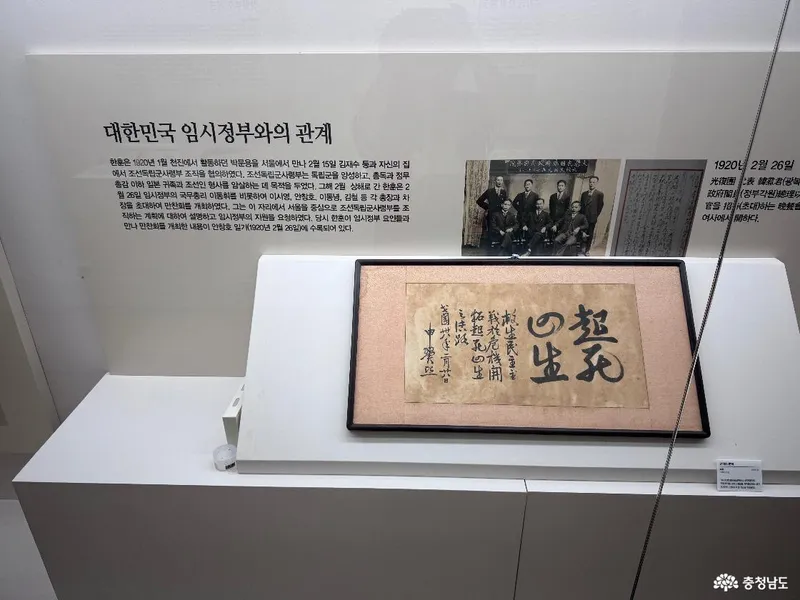 대한민국 임시정부와의 관계
한훈은 1920년 1월 천진에서 활동하던 박문용을 서울에서 만나 2월 15일 김재수 등과 자신의 집
에서 조선독립군사령부 조직을 협의하였다. 조선독립군사령부는 독립군을 양성하고, 총독과 정무
총감 이하 일본 귀족과 조선인 형사를 암살하는 데 목적을 두었다. 그해 2월 상해로 간 한훈은 2
월 26일 임시정부의 국무총리 이동휘를 비롯하여 이시영, 안창호, 이동녕, 김철 등 각 총장과 차
장을 초대하여 만찬회를 개최하였다. 그는 이 자리에서 서울을 중심으로 조선독립군사령부를 조
직하는 계획에 대하여 설명하고 임시정부의 지원을 요청하였다. 당시 한훈이 임시정부 요인들과
만나 만찬회를 개최한 내용이 안창호 일기(1920년 2월 26일)에 수록되어 있다.
1920년 2월 26일
光復團 代表 韓焄君(광복
政府閣員(정부각원)總理
官을 招待(초대)하는 晩餐會
여사에서 開하다.
起死
回生
救生民
戰於危機開
拓起死回生
之活路
民國卅八年二月廿六日
申翼熙
충청남도